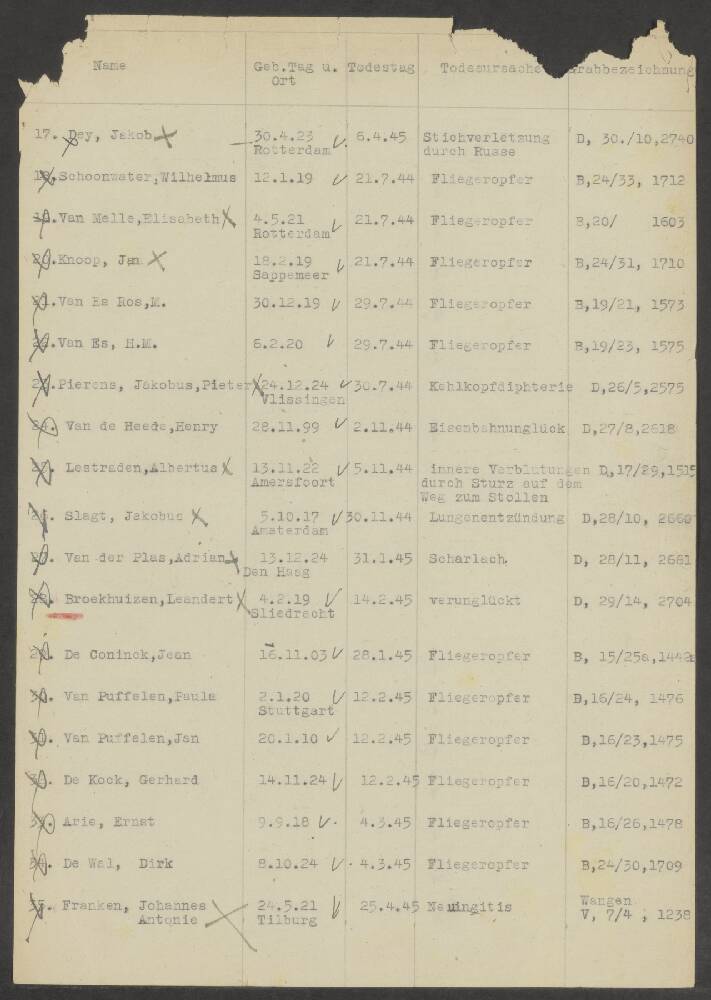 Name Geb.Tag u. Todestag Todesursache Grabbezeichnung
Ort
17. Dey, Jakob 30.4.23 6.4.45 Stichverletzung D, 30./10,2740
Rotterdam durch Russe
18. Schoonwater,Wilhelmus 12.1.19 21.7.44 Fliegeropfer B,24/33, 1712
19. Van Melle,Elisabeth 4.5.21 21.7.44 Fliegeropfer B,20/ 1603
Rotterdam
20. Knoop, Jan 18.2.19 21.7.44 Fliegeropfer B,24/31, 1710
Sappemeer
21. Van Es Ros,M. 30.12.19 29.7.44 Fliegeropfer B,19/21, 1573
22. Van Es, H.M. 6.2.20 29.7.44 Fliegeropfer B,19/23, 1575
23. Pierens, Jakobus,Pieter 24.12.24 30.7.44 Kehlkopfdiphterie D,26/5,2575
Vlissingen
24. Van de Heede,Henry 28.11.99 2.11.44 Eisenbahnunglück D,27/8,2618
25. Lestraden,Albertus 13.11.22 5.11.44 innere Verblutungen D,17/29,1515
Amersfoort durch Sturz auf dem
Weg zum Stollen
26. Slagt, Jakobus 5.10.17 30.11.44 Lungenentzündung D,28/10, 2660
Amsterdam
27. Van der Plas,Adrian 13.12.24 31.1.45 Scharlach. D, 28/11, 2661
Den Haag
28. Broekhuizen,Leendert 4.2.19 14.2.45 verunglückt D, 29/14, 2704
Sliedrecht
29. De Coninck,Jean 16.11.03 28.1.45 Fliegeropfer B, 15/25a,1442a
30. Van Puffelen,Paula 2.1.20 12.2.45 Fliegeropfer B,16/24, 1476
Stuttgart
31. Van Puffelen,Jan 20.1.10 12.2.45 Fliegeropfer B,16/23,1475
32. De Kock, Gerhard 14.11.24 12.2.45 Fliegeropfer B,16/20,1472
33. Arie, Ernst 9.9.18 4.3.45 Fliegeropfer B,16/26,1478
34. De Wal, Dirk 8.10.24 4.3.45 Fliegeropfer B,24/30,1709
35. Franken, Johannes 24.5.21 25.4.45 Neuingitis Wangen
Antonie Tilburg V, 7/4 , 1238